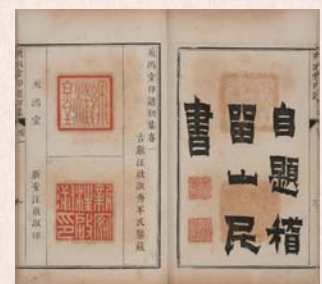 自題稽
留山民
書
飛鴻堂印譜初集卷一
古歙汪啟淑秀峯氏鑒藏
飛鴻堂
新安汪啟淑印